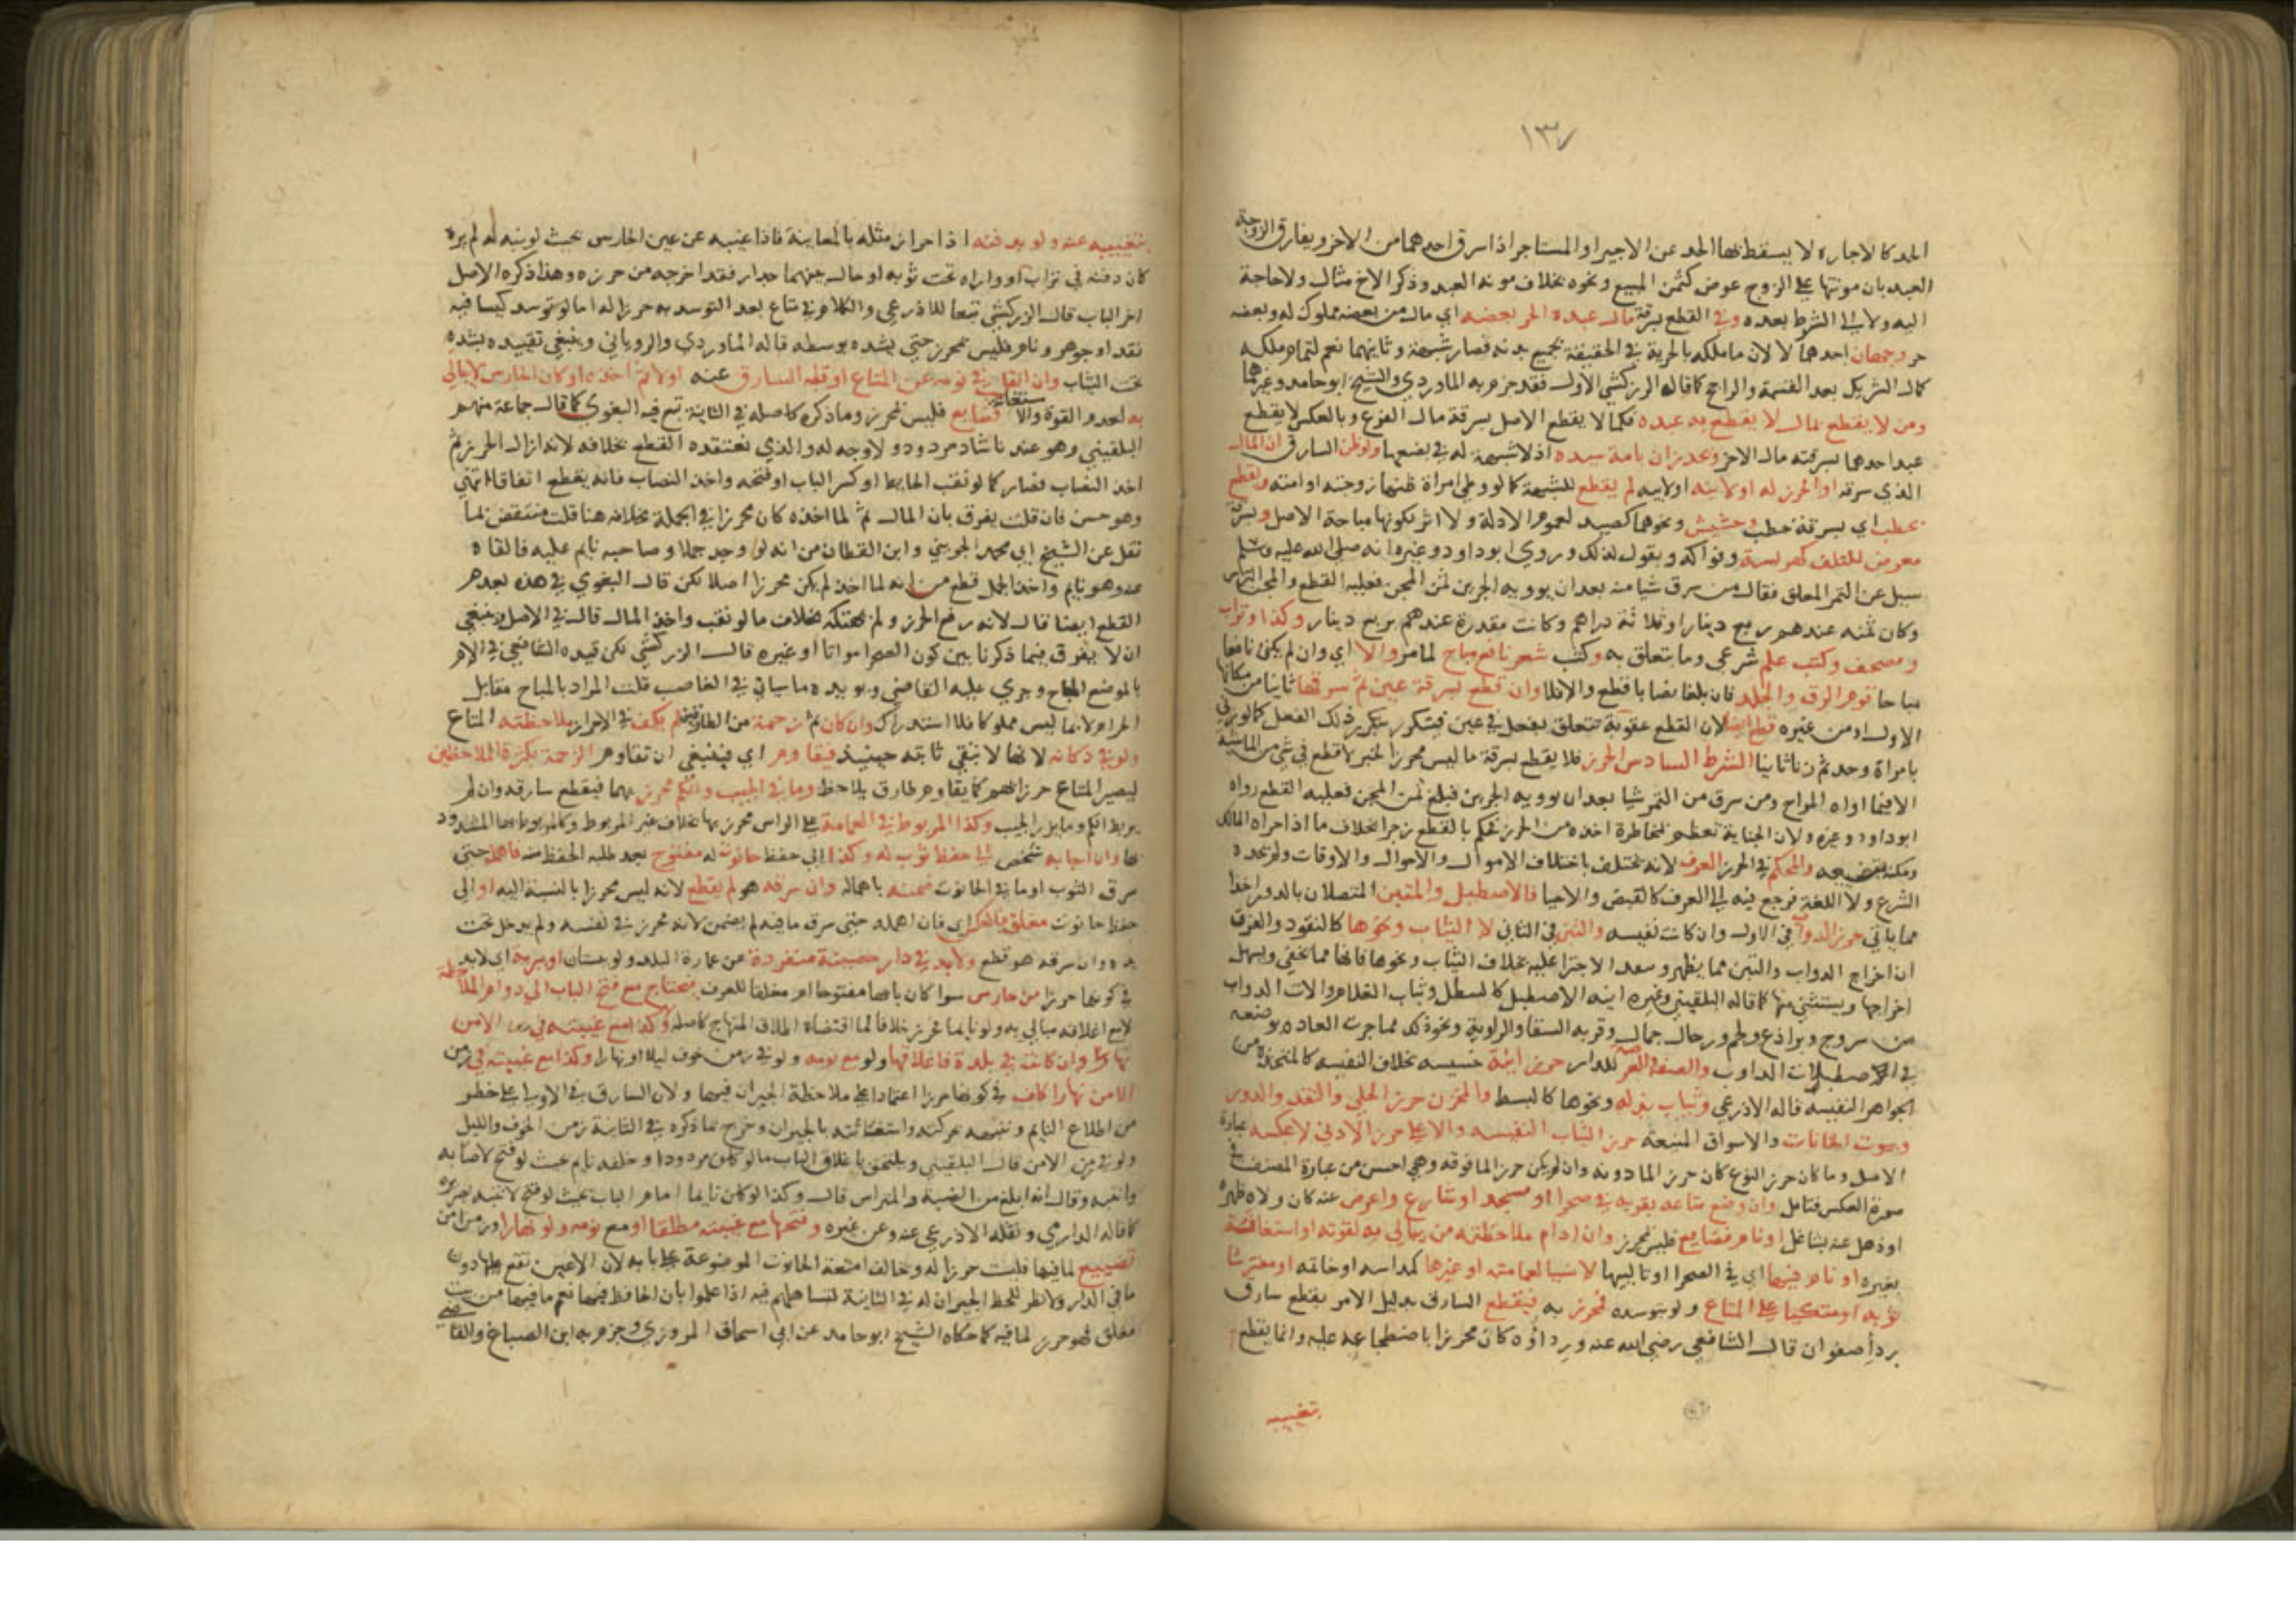 ١٣
الحد كالاجارة لا يسقط بها الحد عن الاجير او المستاجر اذا سرق احدهما من الاخر ويفارق الزوجة
العبد بان مونتها على الزوج عوض كثمن المبيع ونحوه بخلاف مونة العبد وذكر الاخ مثال ولا حاجة
اليه ولا الى الشرط بعده وفي القطع بسرقة مال عبده الحر بعضه اي مال من بعضه مملوك له وبعضه
حر وجهان احدهما لا لان ما ملكه بالحرية في الحقيقة بجميع بدنه فصار شبهة وثانيهما نعم لتمام ملكه
كمال الشريك بعد القسمة والراجح كما قاله الزركشي الاول فقد جزم به الماوردي والشيخ ابو حامد وغيرهما
ومن لا يقطع بمال لا يقطع به عبده فكما لا يقطع الاصل بسرقة مال الفرع وبالعكس لا يقطع
عبد احدهما بسرقته مال الاخر وعد زان بامة سيده اذ لا شبهة له في بضعها ولو ظن السارق ان المال
الذي سرقه او الحرز له او لابنه او لابيه لم يقطع للشبهة كما لو وطي امراة ظنها زوجته او امته ويقطع
بحطب اي بسرقة حطب وحشيش ونحوهما كصيد لعموم الادلة ولا اثر لكونها مباحة الاصل وبسرقة
معرض للتلف كهريسة وفواكه وبقول لذلك وروى ابو داود وغيره انه صلى الله عليه وسلم
سيل عن التمر المعلق فقال من سرق شيا منه بعد ان يوويه الجرين ثمن المجن فعليه القطع والمجن الترس
وكان ثمنه عندهم ربع دينار او ثلاثة دراهم وكانت مقدرة عندهم بربع دينار وكذا وتراب
ومصحف وكتب علم شرعي وما يتعلق به وكتب شعر نافع مباح لما مر والا اي وان لم يكن نافعا
مباحا قوم الورق والجلد فان بلغا نصابا قطع والا فلا وان قطع بسرقة عين ثم سرقها ثانيا من مكانها
الاول او من غيره قطع ايضا لان القطع عقوبة تتعلق بفعل في عين فتتكرر بتكرر ذلك الفعل كما لو زنى
بامراة وحد ثم زنا ثانيا الشرط السادس الحرز فلا يقطع بسرقة ما ليس محرزا لخبر لا قطع في شي من الماشية
الا فيما اواه المراح ومن سرق من التمر شيا بعد ان يوويه الجرين فبلغ ثمن المجن فعليه القطع رواه
ابو داود وغيره ولان الجناية تعظم بمخاطرة اخذه من الحرز فحكم بالقطع زجرا بخلاف ما اذا جراه المالك
ومكنه بتضييعه والمحكم في الحرز العرف لانه يختلف باختلاف الاموال والاحوال والاوقات ولم يحده
الشرع ولا اللغة فرجع فيه الى العرف كالقبض والاحيا فالاصطبل والمتبن المتصلان بالدور اخذا
مما ياتي حرز الدواب في الاول وان كانت نفيسه والتبن في الثاني لا الثياب ونحوها كالنقود والفرق
ان اخراج الدواب والتبن مما يظهر ويبعد الاجترا عليه بخلاف الثياب ونحوها فانها مما تخفي ويسهل
اخراجها ويستثنى منها كما قاله البلقيني وغيره انية الاصطبل كالسطل وثياب الغلام والات الدواب
من سروج وبراذع ولجم ورحال جمال وقربة السقا والراوية ونحو ذلك مما جرت العادة بوضعه
في الاصطبلات الدواب والصفة والعرصة للدار حرز انية خسيسه بخلاف النفيسة كالمتخذة من
الجواهر النفيسة قاله الاذرعي وثياب بذله ونحوها كالبسط والمخزن حرز الحلي والنقد والدور
وبيوت الخانات والاسواق المنيعة حرز الثياب النفيسه والاعلى حرز الادنى لا عكسه عبارة
الاصل وما كان حرز النوع كان حرز الما دونه وان لم يكن حرز الما فوقه وهي احسن من عبارة المصنف في
صورة العكس فتامل وان وضع متاعه بقربه في صحرا او مسجد او شارع واعرض عنه كان ولاه ظهره
او ذهل عنه بشاغل او نام فضايع فليس بمحرز وان ادام ملاحظته من يبالي به لقوته او استغاثته
بغيره او نام فيها اي في الصحرا او تالييها لابسا لعمامته او غيرها كمداسه او خاتمه او مفترشا
ثوبه او متكيا على المتاع ولو بتوسده فمحرز به فيقطع السارق بدليل الامر بقطع سارق
رداء صفوان قال الشافعي رضي الله عنه ورداؤه كان محرزا باضطجاعه عليه وانما يقطع
بتغييبه
بتغييبه عنه ولو بدفنه اذ احراز مثله بالمعاينة فاذا غيبه عن عين الحارس بحيث لو نبه له لم يره
كان دفنه في تراب او واراه تحت ثوبه او حال بينهما جدار فقد اخرجه من حرزه وهذا ذكره الاصل
اخر الباب قال الزركشي تبعا للاذرعي والكلام في متاع يعد التوسد به حرزا له اما لو توسد كيسا فيه
نقد او جوهر ونام فليس بمحرز حتى يشده بوسطه قاله الماوردي والروياني وينبغي تقييده بشده
تحت الثياب وان انقلب في نومه عن المتاع او قلبه السارق عنه اولا ثم اخذه او كان الحارس لا يبالي
به لعدم القوة والاستغاثة فضايع فليس بمحرز وما ذكره كاصله في الثانية تبع فيه البغوي كما قال جماعة منهم
البلقيني وهو عندنا شاذ مردود ولا وجه له والذي نعتقده القطع بخلافه لانه ازال الحرز ثم
اخذ النصاب فصار كما لو نقب الحايط او كسر الباب او فتحه واخذ النصاب فانه يقطع اتفاقا انتهى
وهو حسن فان قلت يفرق بان المال ثم لما اخذه كان محرزا في الجملة بخلافه هنا قلت منتقض بما
نقل عن الشيخ ابي محمد الجويني وابن القطان من انه لو وجد جملا وصاحبه نايم عليه فالقاه
عنه وهو نايم واخذ الجمل قطع مع انه لما اخذه لم يكن محرزا اصلا لكن قال البغوي في هذه بعدم
القطع ايضا قال لانه رفع الحرز ولم يهتكه بخلاف ما لو نقب واخذ المال قال في الاصل وينبغي
ان لا يفرق فيما ذكرنا بين كون الصحرا مواتا او غيره قال الزركشي لكن قيده الشافعي في الام
بالموضع المباح وجرى عليه القاضي ويويده ما سياتي في الغاصب قلت المراد بالمباح مقابل
الحرام لا بما ليس مملوكا فلا استدراك وان كان ثم زحمة من الطارقين لم يكف في الاحراز ملاحظته المتاع
ولو في دكانه لانها لا تبقي ثابته حينيذ فيقاوم اي فينبغي ان تقاوم الزحمة بكثرة الملاحظين
ليصير المتاع حرزا بهم كما يقاوم طارق بلاحظ وما في الجيب والكم محرز بهما فيقطع سارقه وان لم
يربط الكم وما يزر الجيب وكذا المربوط في العمامة على الراس محرز بها بخلاف غير المربوط وكالمربوط بها المشدود
بها وان اجابه شخص الى حفظ ثوب له وكذا الى حفظ حانوت له مفتوح بعد طلبه الحفظ منه فاهمله حتى
سرق الثوب او ما في الحانوت ضمنه باهماله وان سرقه هو لم يقطع لانه ليس محرزا بالنسبة اليه او الى
حفظ حانوت مغلق فبالعكس اي فان اهمله حتى سرق ما فيه لم يضمن لانه محرز في نفسه ولم يدخل تحت
يده وان سرقه هو قطع ولابد في دار حصينة منفردة عن عمارة البلد ولو ببستان او برية اي لابد
في كونها حرزا من حارس سوا كان بابها مفتوحا ام مغلقا للعرف فيحتاج مع فتح الباب الى دوام الملاحظة
لا مع اغلاقه مبالي به ولو نايما فمحرز خلافا لما اقتضاه اطلاق المنهاج كاصله وكذا مع غيبته في زمن الامن
نهارا وان كانت في بلدة فاغلاقها ولو مع نومه ولو في زمن خوف ليلا او نهارا وكذا مع غيبته في زمن
الامن نهارا كاف في كونها حرزا اعتمادا على ملاحظة الجيران فيها ولان السارق في الاولى على خطر
من اطلاع النايم وتنبهه بحركته واستغاثته بالجيران وخرج بما ذكره في الثانية زمن الخوف والليل
ولو في زمن الامن قال البلقيني ويلتحق باغلاق الباب ما لو كان مردودا وخلفه نايم بحيث لو فتح لاصابه
وانتبه وقال انه ابلغ من الضبة والمتراس قال وكذا لو كان نايما امام الباب بحيث لو فتح لانتبه بصريره
كما قاله الدارمي ونقله الاذرعي عنه وعن غيره وفتحها مع غيبته مطلقا او مع نومه ولو نهارا وزمن امن
تضييع لما فيها فليست حرزا له وخالف امتعة الحانوت الموضوعة على بابه لان الاعين تقع عليها دون
ما في الدار ولا نظر للحظ الجيران له في الثانية لتساهلهم فيه اذا علموا بان الحافظ فيها نعم ما فيها من بيت
مغلق فهو حرز لما فيه كما حكاه الشيخ ابو حامد عن ابي اسحاق المروزي وجزم به ابن الصباغ والقاضي